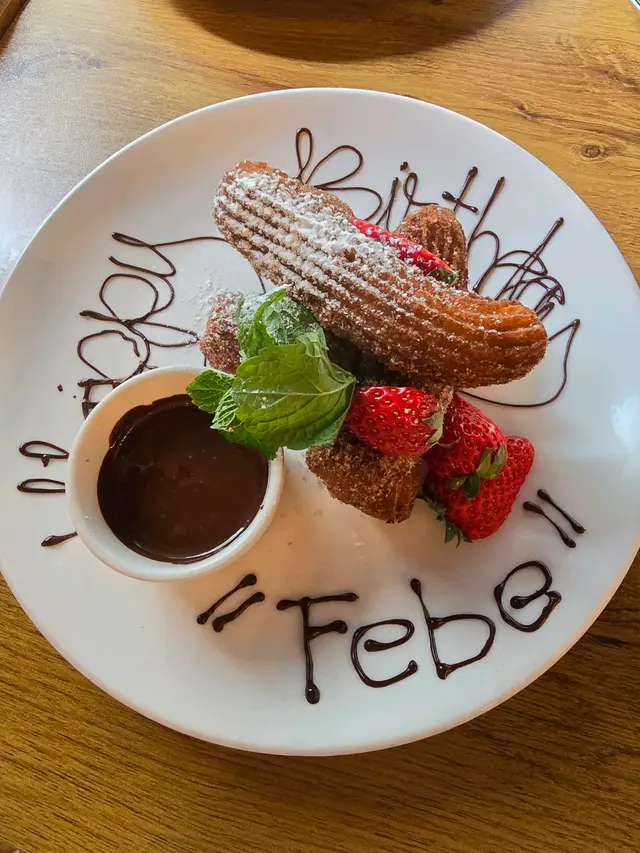 Happy Birthday
"Febe"